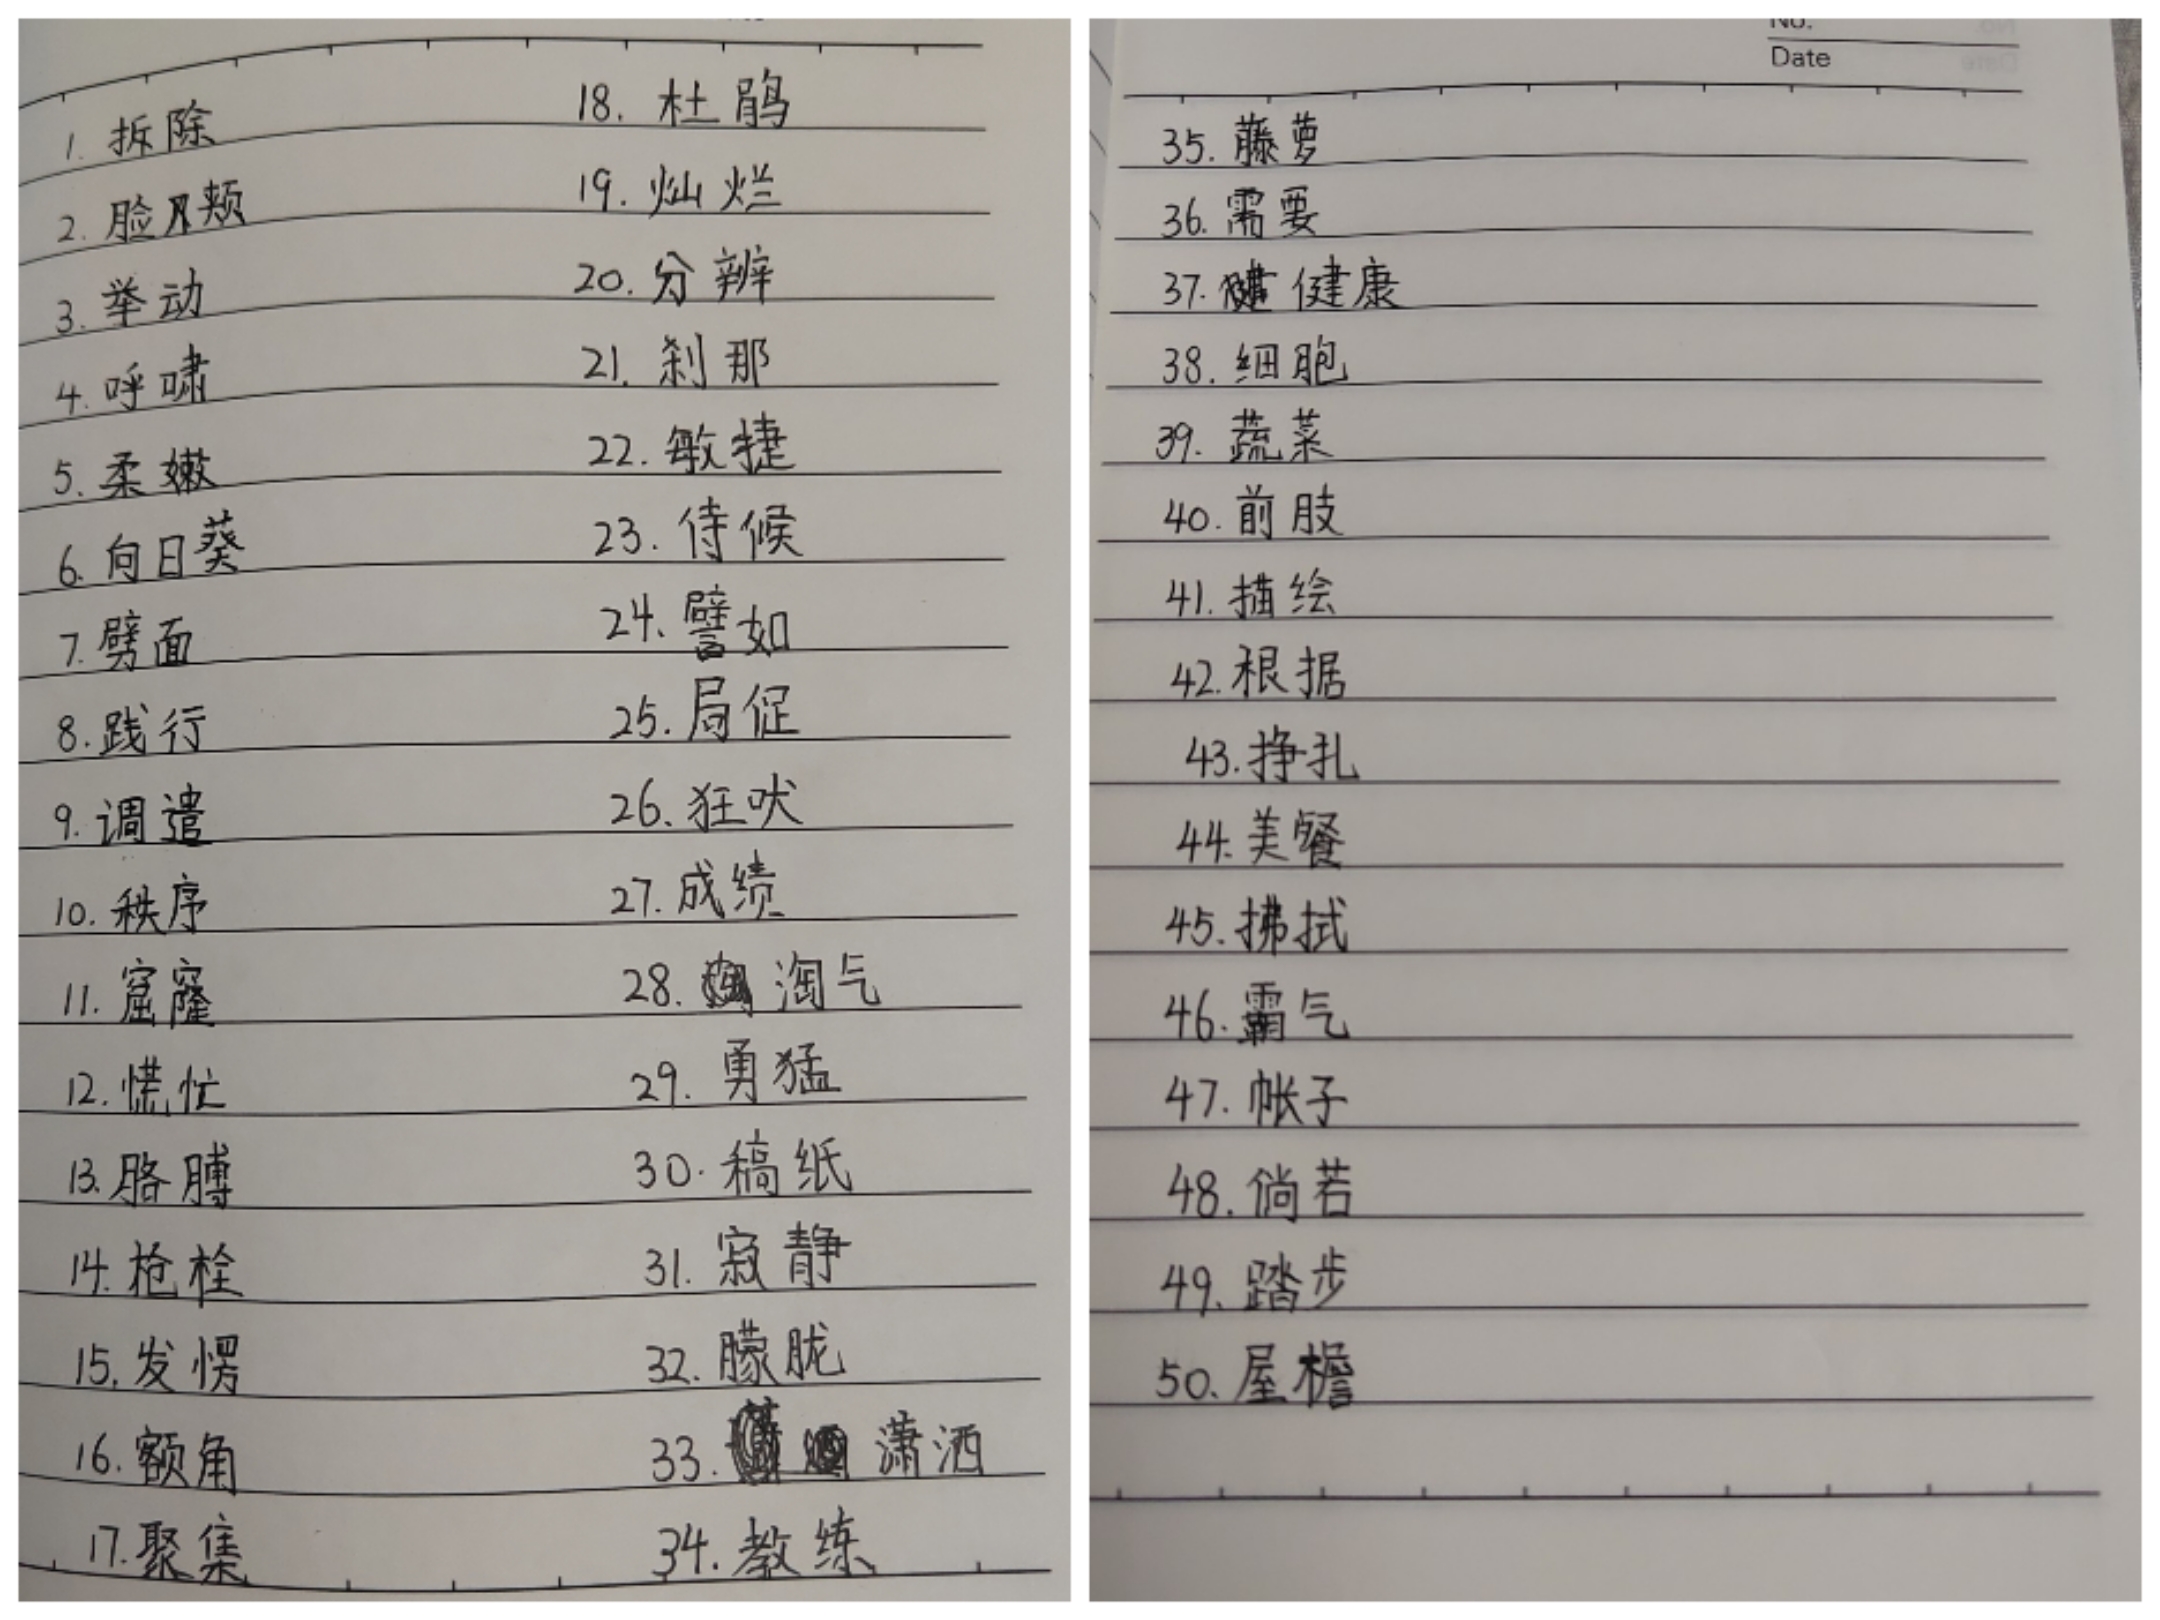 1. 拆除
2. 脸颊
3. 举动
4. 呼啸
5. 柔嫩
6. 向日葵
7. 劈面
8. 践行
9. 调遣
10. 秩序
11. 窟窿
12. 慌忙
13. 胳膊
14. 枪栓
15. 发愣
16. 额角
17. 聚集
18. 杜鹃
19. 灿烂
20. 分辨
21. 刹那
22. 敏捷
23. 侍候
24. 譬如
25. 局促
26. 狂吠
27. 成绩
28. 淘气
29. 勇猛
30. 稿纸
31. 寂静
32. 朦胧
33. 潇洒
34. 教练
No.
Date
35. 藤萝
36. 需要
37. 健康
38. 细胞
39. 蔬菜
40. 前肢
41. 描绘
42. 根据
43. 挣扎
44. 美餐
45. 拂拭
46. 霸气
47. 帐子
48. 倘若
49. 踏步
50. 屋檐